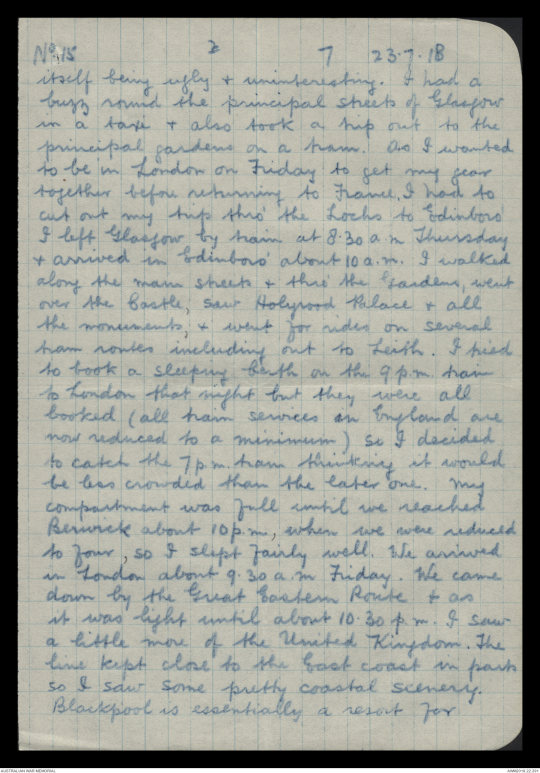 No 15 2 7 23.7.18
itself being ugly & uninteresting. I had a
buzz round the principal streets of Glasgow
in a taxi & also took a trip out to the
principal gardens on a tram. As I wanted
to be in London on Friday to get my gear
together before returning to France, I had to
cut out my trip thro' the Lochs to Edinboro'
I left Glasgow by train at 8.30 a.m Thursday
& arrived in Edinboro' about 10 a.m. I walked
along the main streets & thro' the Gardens, went
over the Castle, saw Holyrood Palace & all
the monuments, & went for rides on several
tram routes including out to Leith. I tried
to book a sleeping berth on the 9 p.m. train
to London that night but they were all
booked (all train services in England are
now reduced to a minimum) so I decided
to catch the 7 p.m. train thinking it would
be less crowded than the later one. My
compartment was full until we reached
Berwick about 10 p.m, when we were reduced
to four, so I slept fairly well. We arrived
in London about 9.30 a.m Friday. We came
down by the Great Eastern Route & as
it was light until about 10.30 p.m. I saw
a little more of the United Kingdom. The
line kept close to the East coast in parts
so I saw some pretty coastal scenery.
Blackpool is essentially a resort for
AUSTRALIAN WAR MEMORIAL